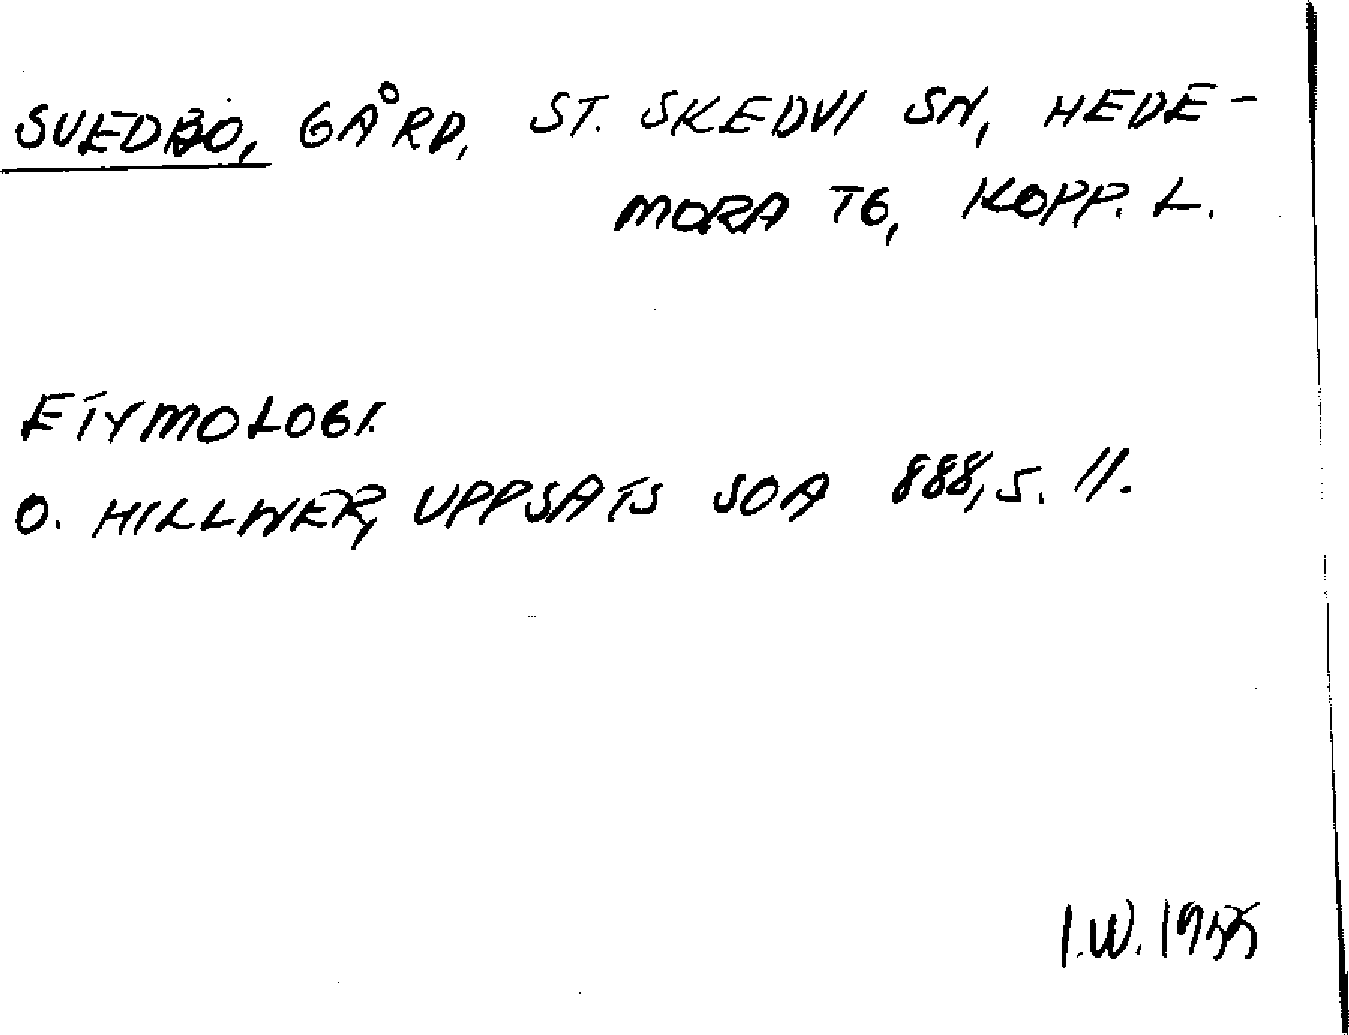 SVEDBO, GÅRD, ST. SKEDVI SN, HEDE-
MORA TG, KOPP. L.
ETYMOLOGI.
O. HILLNER, UPPSATS SOA 888, S. 11.
I.W. 1955